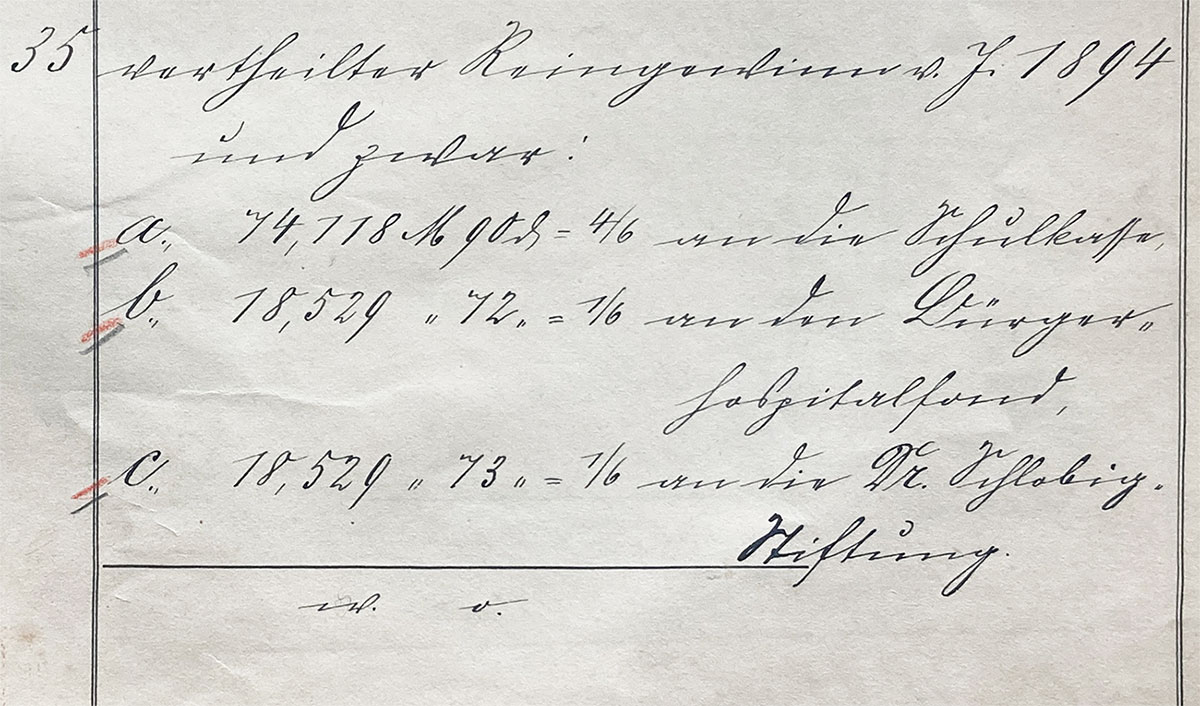 35 vertheilter Reingewinn v. J. 1894
und zwar:
a., 74,118 M 90 ₰ = 4/6 an die Schulkasse,
b., 18,529 " 72 " = 1/6 an den Bürger-
hospitalfond,
c., 18,529 " 73 " = 1/6 an die Dr. Schlobig-
Stiftung.
w. o.